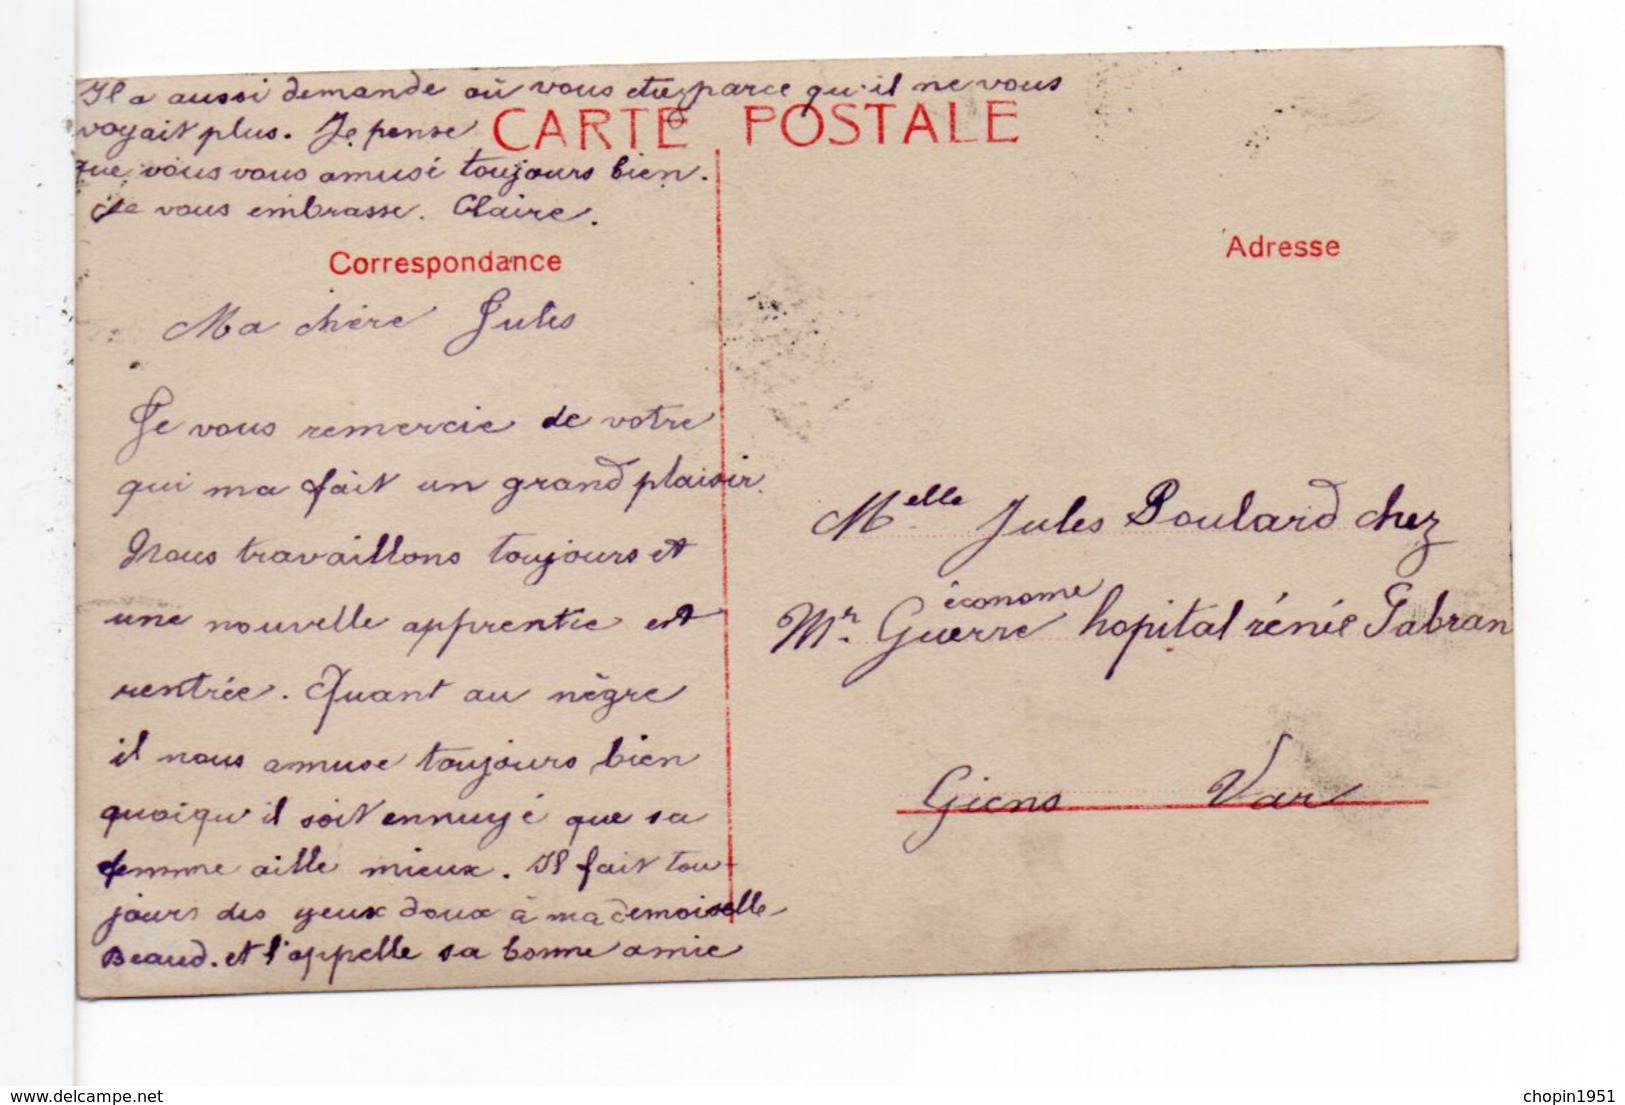 Il a aussi demande où vous etes parce qu'il ne vous
voyait plus. Je pense
que vous vous amusé toujours bien.
Je vous embrasse. Claire.
CARTE POSTALE
Correspondance
Adresse
Ma chère Jules
Je vous remercie de votre
qui ma fait un grand plaisir.
Nous travaillons toujours et
une nouvelle apprentie est
rentrée. Quant au nègre
il nous amuse toujours bien
quoiqu'il soit ennuyé que sa
femme aille mieux. Il fait tou-
jours des yeux doux à mademoiselle
Beaud. et l'appelle sa bonne amie
Melle Jules Poulard chez
économe
Mr. Guerre hopital rénée Sabran
Giens Var
www.delcampe.net
chopin1951